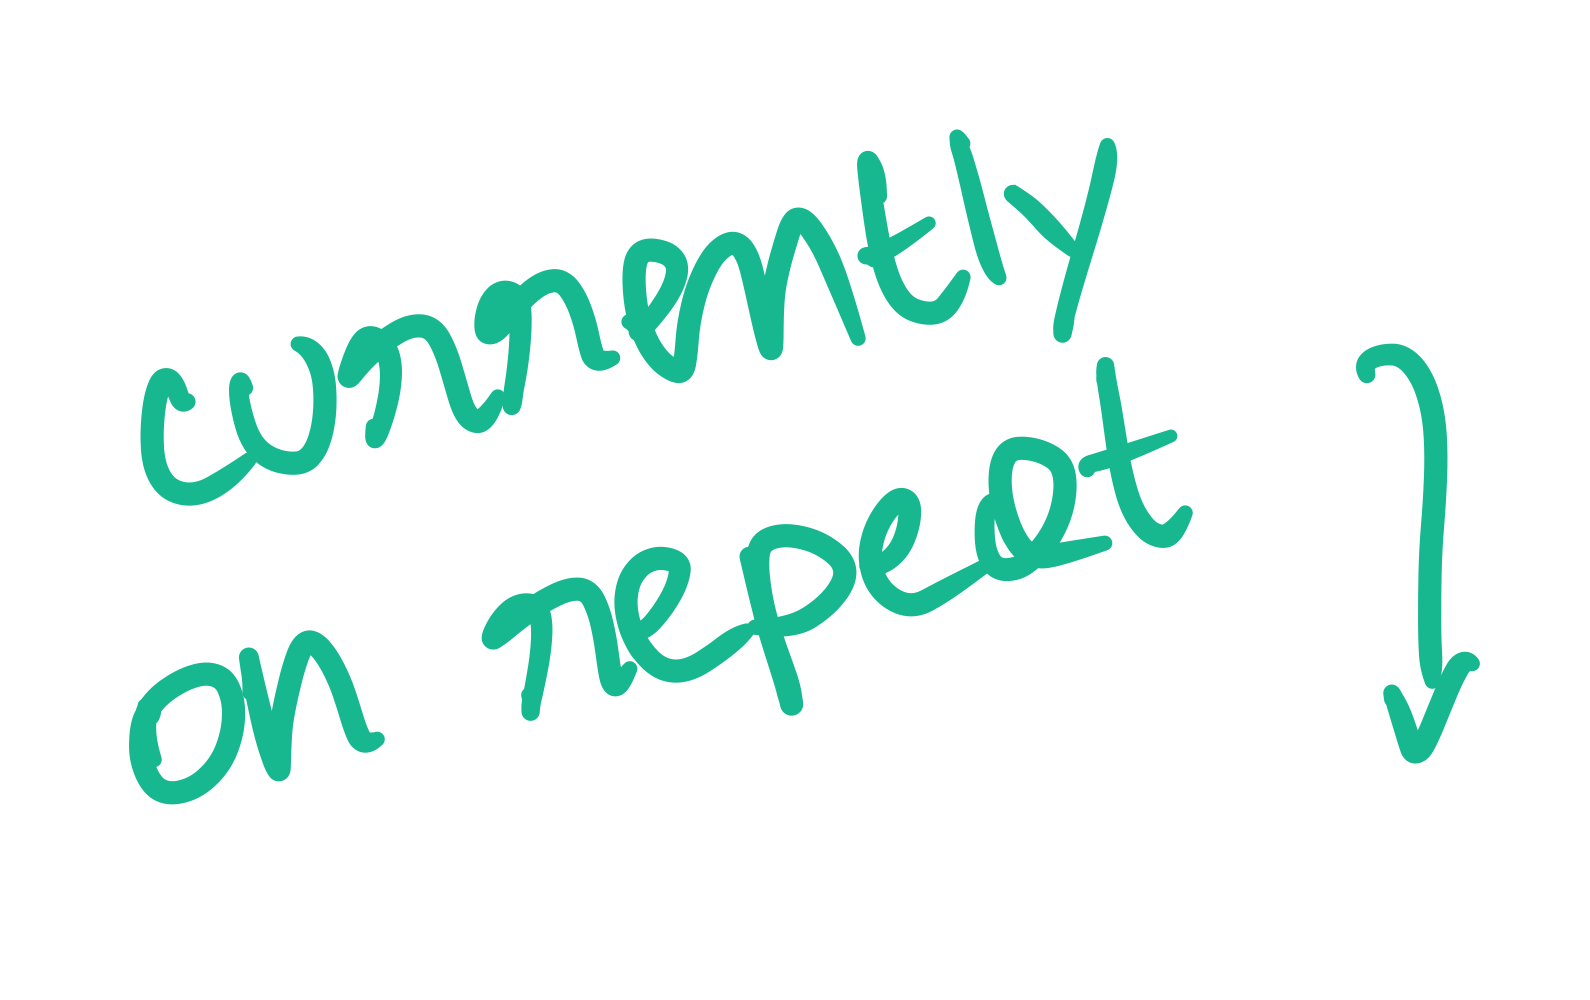 currently
on repeat